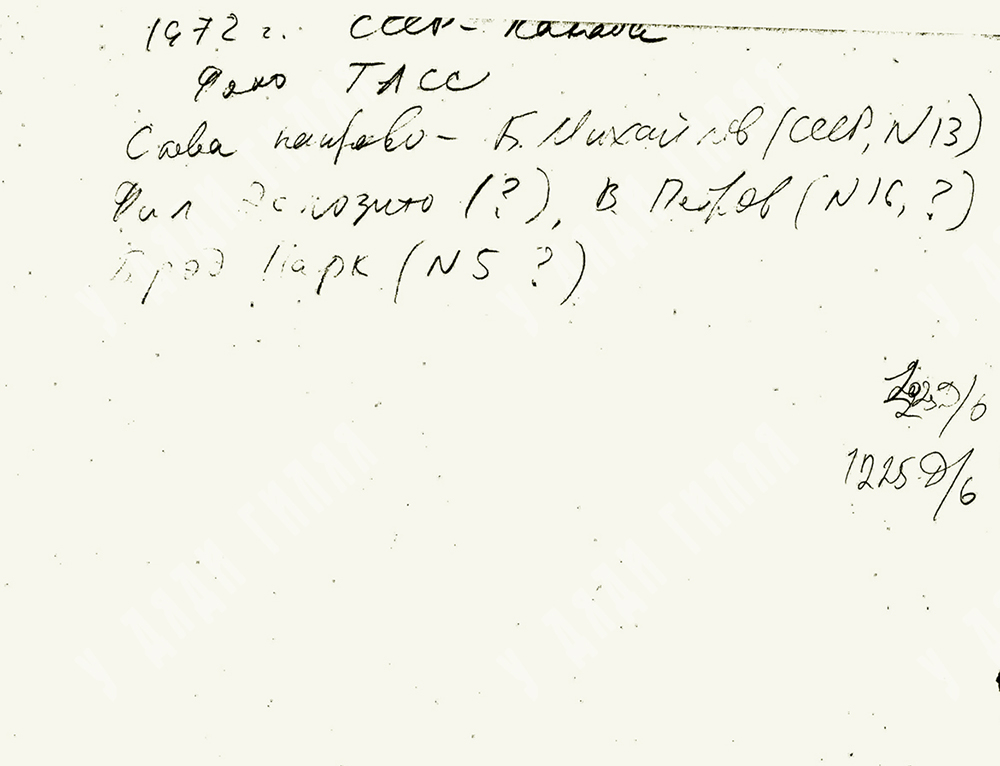 1972 г. СССР - Канада
Фото ТАСС
Слева направо - Б. Михайлов (СССР, N13)
Фил Эспозито (?), В Петров (N 16, ?)
Брэд Парк (N5 ?)
1225 Д/6